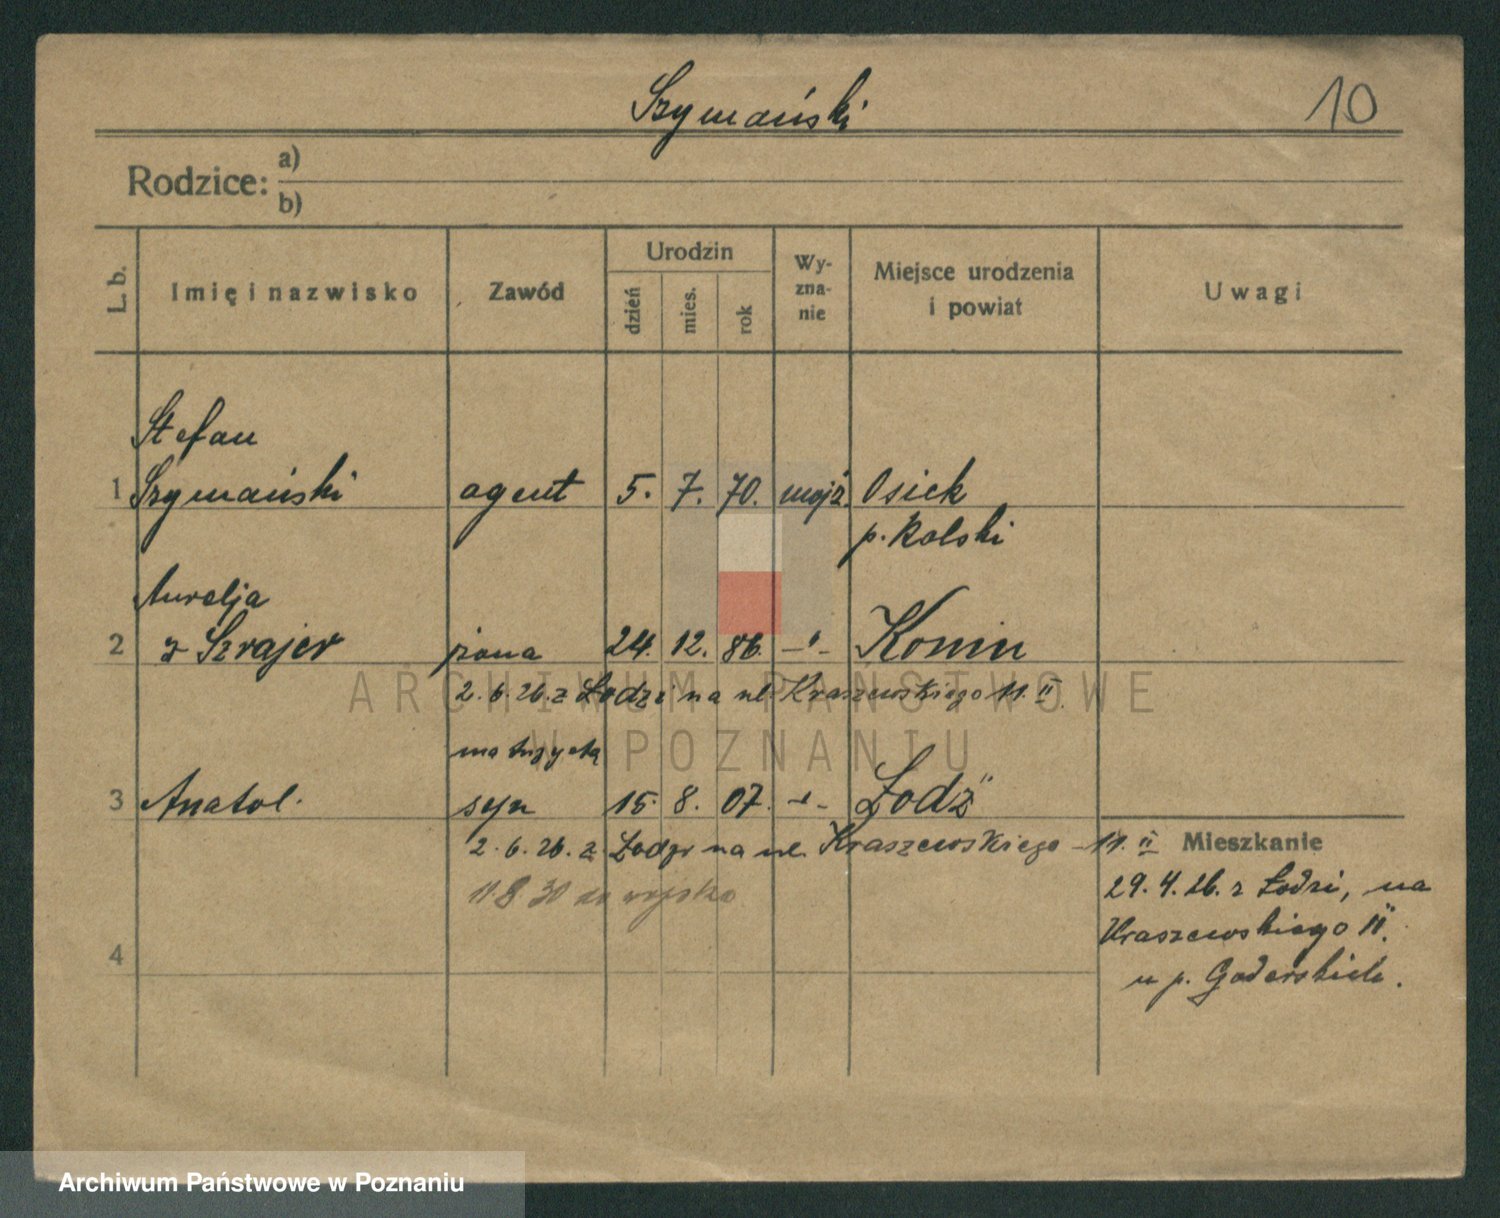 Szymański
10
Rodzice: a)
b)
L. b.
Imię i nazwisko
Zawód
Urodzin
dzień
mies.
rok
Wy-
zna-
nie
Miejsce urodzenia
i powiat
Uwagi
Stefan
1 Szymański agent 5. 7. 70. mojż. Osiek
p. Kolski
Aurelja
2 z Szrajer żona 24. 12. 86. -"- Konin
2.6.26. z Łodzi na ul. Kraszewskiego 11. II
maturzysta
3 Anatol. syn 15. 8. 07. -"- Łodź
2.6.26. z Łodzi na ul. Kraszewskiego - 11. II
11.8.30 do wojska
4
Mieszkanie
29.4.26. z Łodzi, na
Kraszewskiego 11.
u p.
ARCHIWUM PAŃSTWOWE
W POZNANIU
Archiwum Państwowe w Poznaniu